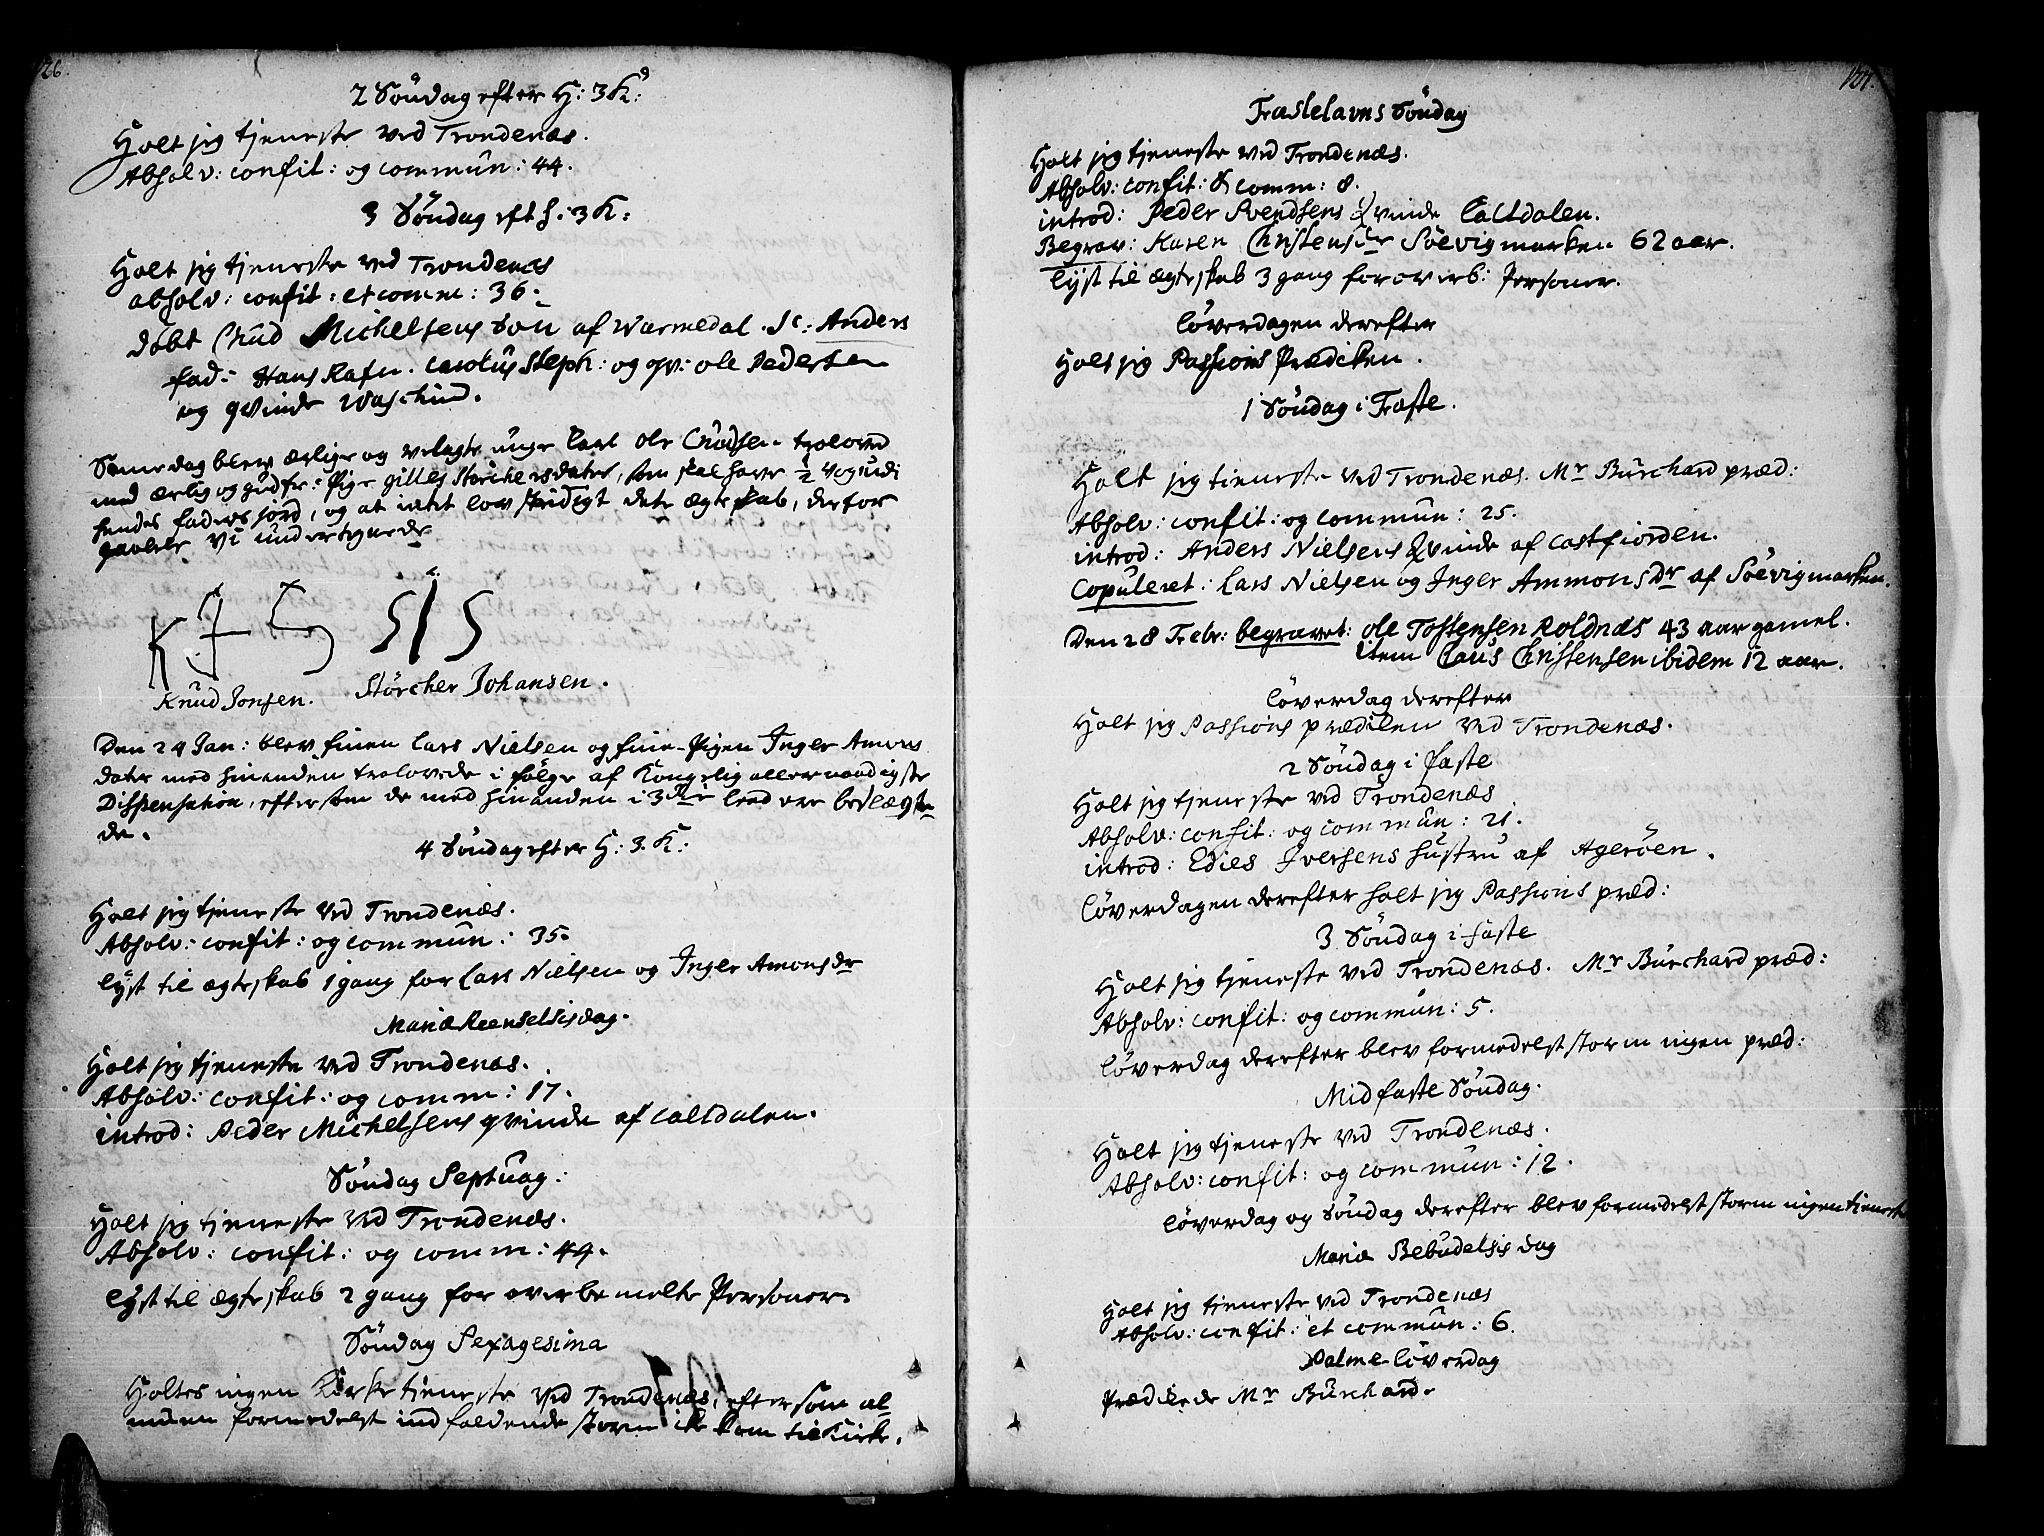 126.
2 Söndag efter H: 3 K:
Holt jeg tjeneste ved Trondenæs.
Absolv: confit: og commun: 44.
3 Söndag eft H: 3 K:
Holt jeg tjeneste ved Trondenæs
absolv: confit: et comm: 36.
döbt Michelsens Sön af Warmedal. N: Anders
fad: Hans Rafn. Carolus Steph: og qv: ole Pedersen
og qvinde
Same dag blev ærlige og velagte unge Carl ole Cnudsen trolovet
med ærlig og gudfr: Pige gilles Störchersdater, som skal have ½ vog i
hendes faders jord, og at intet lov stridigt dete ægteskab, derfor
gavere vi undertegnede
K I S S I S
Knud Jonsen. Störcher Johansen.
Den 24 Jan: blev finen Lars Nielsen og fine-Pigen Inger Amons
dater med hinanden trolovede i følge af Kongelig allernaadigste
Dispensation, eftersom de med hinanden i 3die leed ere beslægte-
de.
4 Söndag efter H: 3. K:
Holt jeg tjeneste ved Trondenæs.
Absolv: confit: og commun: 35.
lyst til ægteskab 1 gang for Lars Nielsen og Inger Amonsdr
Mariæ Reenselsis dag.
Holt jeg tjeneste ved Trondenæs.
Absolv: confit: og comm: 17.
introd: Peder Michelsens qvinde af Caltdalen.
Söndag Septuag:
Holt jeg tjeneste ved Trondenæs.
Absolv: confit: og comm: 44.
lyst til ægteskab 2 gang for overbemelte Personer.
Söndag Sexagesima
Holtes ingen Kirke tjeneste ved Trondenæs, eftersom al-
muen formedelst indfaldende storm ike kom til Kirke.
127.
Fastelavns Söndag
Holt jeg tjeneste ved Trondenæs.
Absolv: confit: & comm: 8.
introd: Peder Svendsens Qvinde Caltdalen.
Begrav: Karen Christensdr Söevigmarken 62 aar.
lyst til ægteskab 3 gang for overb: Personer.
löverdagen derefter
Holt jeg Passions Prædiken.
1 Söndag i Faste.
Holt jeg tieneste ved Trondenæs. Mr Burchard præd:
Absolv: confit: og commun: 25.
introd: Anders Nielsens Qvinde af Castfiorden.
Copuleret: Lars Nielsen og Inger Ammonsdr af Söevigmarken.
Den 28 Febr: begravet: ole Tostensen Roldnæs 43 aar gamel.
item Claus Christensen ibidem 12 aar.
löverdag derefter
Holt jeg Passions prædiken ved Trondenæs.
2 Söndag i faste
Holt jeg tjeneste ved Trondenæs
Absolv: confit: og commun: 21.
introd: Edies Iversens hustru af Ageröen.
löverdagen derefter holt jeg Passions præd:
3 Söndag i faste
Holt jeg tjeneste ved Trondenæs. Mr Burchard præd:
Absolv: confit: og commun: 5.
löverdag derefter blev formedelst storm ingen præd:
Midfaste Söndag.
Holt jeg tjeneste ved Trondenæs.
Absolv: confit: og commun: 12.
löverdag og Söndag derefter blev formedelst storm ingen tieneste
Mariæ Bebudelsis dag
Holt jeg tieneste ved Trondenæs
Absolv: confit: et commun: 6.
Palme-löverdag
Prædikede Mr Burchard.